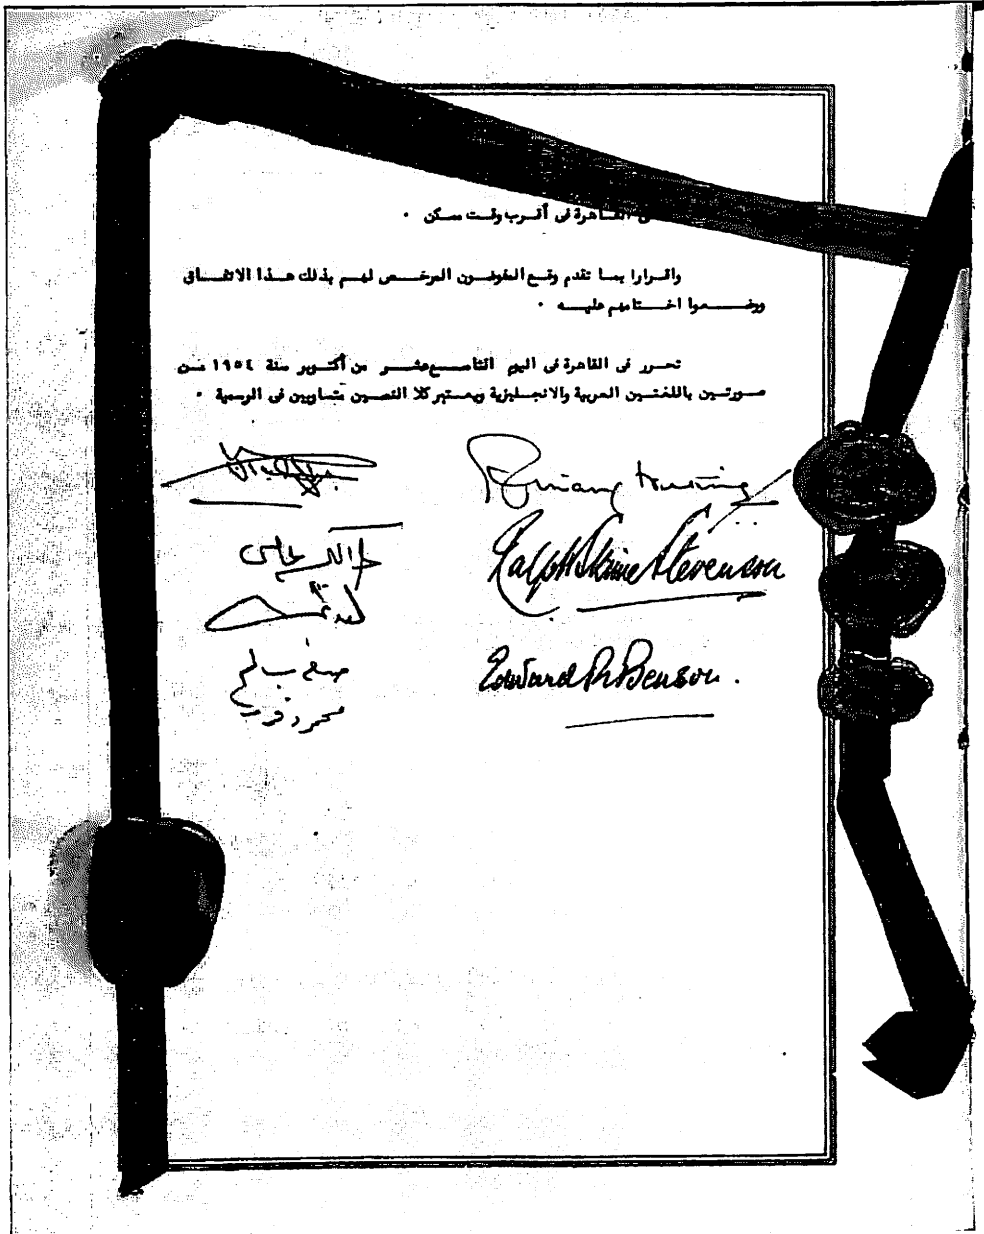 القاهرة فى أقرب وقت ممكن ٠
واقرارا بما تقدم وقع المفوضون المرخص لهم بذلك هذا الاتفاق
ووضعوا اختامهم عليه ٠
تحرر فى القاهرة فى اليوم التاسع عشر من أكتوبر سنة ١٩٥٤ من
صورتين باللغتين العربية والانجليزية ويعتبر كلا النصين متساويين فى الرسمية ٠
Ralph Skrine Stevenson
صلاح سالم
Edward R Benson.
محمود فوزى